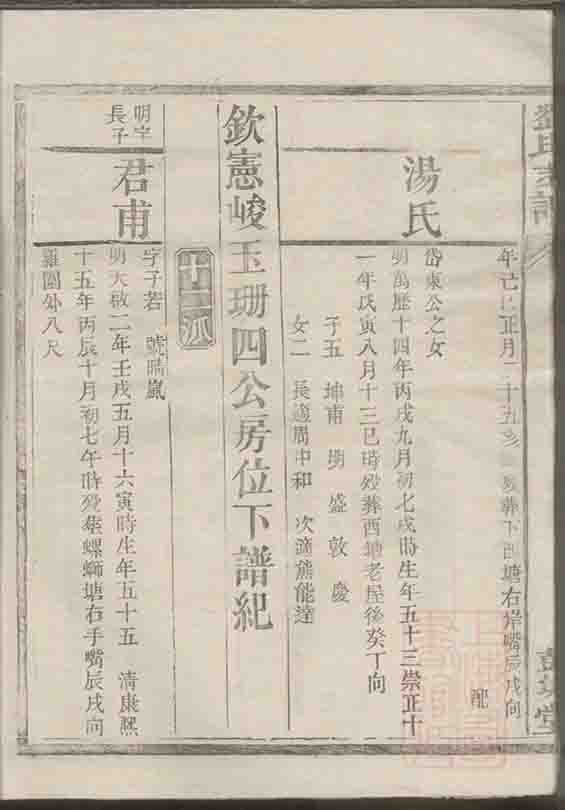 氏
年亡巳正月二十五亥
葬下西塘右岸嘴辰戌向
配
湯氏
岱東公之女
明萬歷十四年丙戌九月初七戌時生年五十三崇正十
一年戊寅八月十三巳時歿葬西塘老屋後癸丁向
子五 坤甫 明 盛 敦 慶
女二 長適周中和 次適熊能達
欽憲峻玉珊四公房位下譜紀
十二派
明宇
長子
君甫
字子若 號曉嵐
明天啟二年壬戌五月十六寅時生年五十五 清康熙
十五年丙辰十月初七午時歿葬螺螄塘右手嘴辰戌向
羅圍外八尺